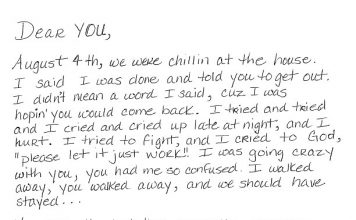 Dear YOU,
August 4th, we were chillin at the house.
I said I was done and told you to get out.
I didn't mean a word I said, cuz I was
hopin' you would come back. I tried and tried
and I cried and cried up late at night, and I
hurt. I tried to fight, and I cried to God,
"please let it just work!!" I was going crazy
with you, you had me so confused. I walked
away, you walked away, and we should have
stayed...